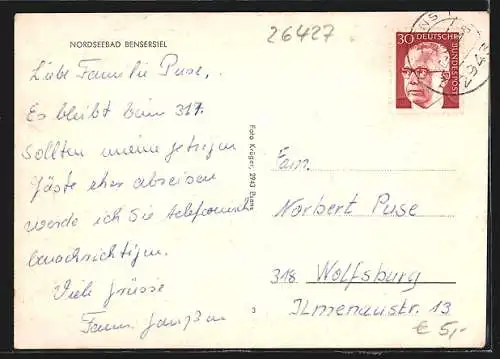 NORDSEEBAD BENSERSIEL
26427
30 DEUTSCHE BUNDESPOST
Liebe Familie Puse,
Es bleibt beim 31.7.
Sollten meine jetzigen
Gäste eher abreisen
werde ich Sie telefonisch
benachrichtigen.
Viele Grüsse
Fam.
Foto Krüger, 2943 Esens
3
Fam.
Norbert Puse
318 Wolfsburg
Ilmenaustr. 13
€ 5,-